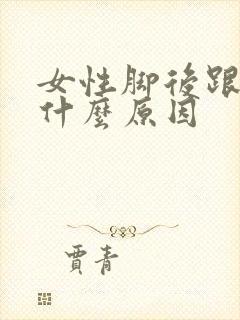 女性脚後跟
什麼原因
賈青